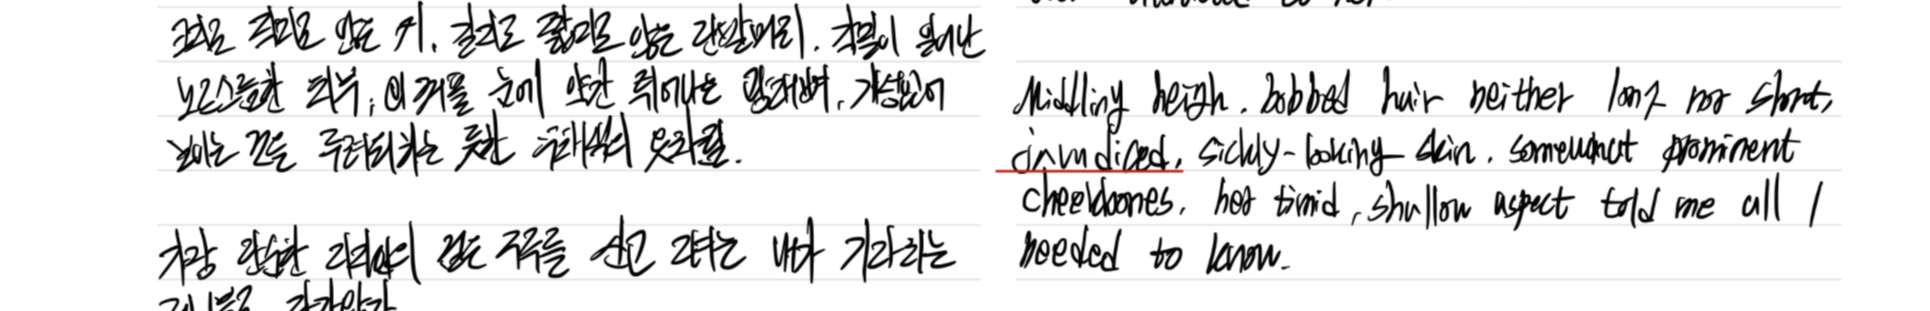 크지도 작지도 않은 키, 길지도 짧지도 않은 단발머리, 각질이 일어난
노르스름한 피부, 외꺼풀 눈에 약간 튀어나온 광대뼈, 개성있어
보이는 것을 두려워하는 듯한 무채색의 옷차림.
가장 단순한 디자인의 검은 구두를 신고 그녀는 내가 기다리는
Middliny heigh. bobbed hair neither long nor short,
jaundiced, sickly-looking skin. somewhat prominent
cheekbones. her timid, shallow aspect told me all I
needed to know.